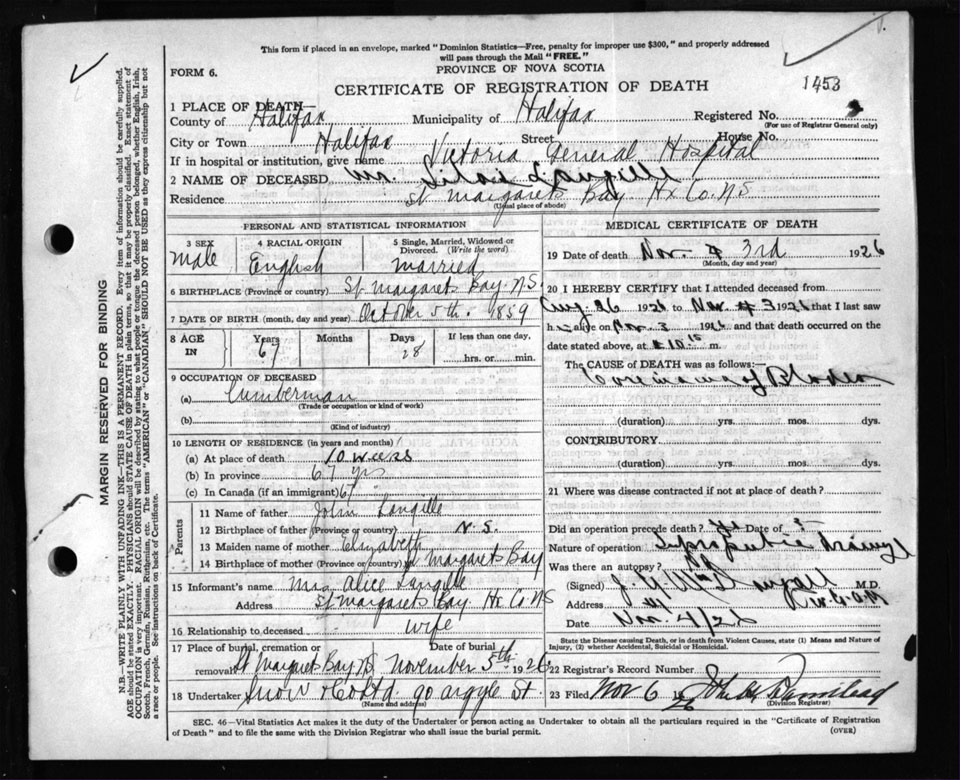 This form if placed in an envelope, marked "Dominion Statistics—Free, penalty for improper use $300," and properly addressed
will pass through the Mail "FREE."
PROVINCE OF NOVA SCOTIA
FORM 6.
CERTIFICATE OF REGISTRATION OF DEATH
1453
1 PLACE OF DEATH—
County of Halifax Municipality of Halifax Registered No. 
(For use of Registrar General only)
City or Town Halifax Street House No.
If in hospital or institution, give name Victoria General Hospital
2 NAME OF DECEASED Mr. Langille
Residence St Margarets Bay Hx Co. N.S
(Usual place of abode)
PERSONAL AND STATISTICAL INFORMATION
3 SEX male
4 RACIAL ORIGIN English
5 Single, Married, Widowed or Divorced. (Write the word) married
6 BIRTHPLACE (Province or country) St. Margarets Bay. NS.
7 DATE OF BIRTH (month, day and year) October 5th. 1859
8 AGE IN Years 67 Months Days 28 If less than one day, hrs. or min.
9 OCCUPATION OF DECEASED
(a) Lumberman
(Trade or occupation or kind of work)
(b)
(Kind of industry)
10 LENGTH OF RESIDENCE (in years and months)
(a) At place of death 10 weeks
(b) In province 67 yrs
(c) In Canada (if an immigrant) 67
Parents
11 Name of father John Langille
12 Birthplace of father (Province or country) N.S.
13 Maiden name of mother Elizabeth
14 Birthplace of mother (Province or country) St Margaret Bay
15 Informant's name Mrs Alice Langille
Address St Margarets Bay. Hx Co NS
16 Relationship to deceased wife
17 Place of burial, cremation or removal St Margaret Bay NS Date of burial November 5th. 1926
18 Undertaker Snow & Co Ltd. 90 Argyle St.
(Name and address)
MEDICAL CERTIFICATE OF DEATH
19 Date of death Nov. 3rd 1926
(Month, day and year)
20 I HEREBY CERTIFY that I attended deceased from
Aug 26 1926 to Nov. 3 1926 that I last saw
h alive on Nov. 3 1926 and that death occurred on the
date stated above, at 10.15 m.
The CAUSE OF DEATH was as follows:
of Bladder
(duration) yrs. mos. dys.
CONTRIBUTORY
(duration) yrs. mos. dys.
21 Where was disease contracted if not at place of death?
Did an operation precede death? Yes Date of ?
Nature of operation Suprapubic Drainage
Was there an autopsy? No
(Signed) M.D.
Address
Date Nov. 4/26
State the Disease causing Death, or in death from Violent Causes, state (1) Means and Nature of
Injury, (2) whether Accidental, Suicidal or Homicidal.
22 Registrar's Record Number
23 Filed Nov 6 1926
(Division Registrar)
SEC. 46—Vital Statistics Act makes it the duty of the Undertaker or person acting as Undertaker to obtain all the particulars required in the "Certificate of Registration
of Death" and to file the same with the Division Registrar who shall issue the burial permit.
(OVER)
MARGIN RESERVED FOR BINDING
N.B.—WRITE PLAINLY WITH UNFADING INK—THIS IS A PERMANENT RECORD. Every item of information should be carefully supplied.
AGE should be stated EXACTLY. PHYSICIANS should STATE CAUSE OF DEATH in plain terms, so that it may be properly classified. Exact statement of
OCCUPATION is very important. RACIAL ORIGIN will be described by stating to what people or tongue the deceased person belonged, whether English, Irish,
Scotch, French, German, Russian, Ruthenian, etc. The terms "AMERICAN" or "CANADIAN" SHOULD NOT BE USED as they express citizenship but not
a race or people. See instructions on back of Certificate.